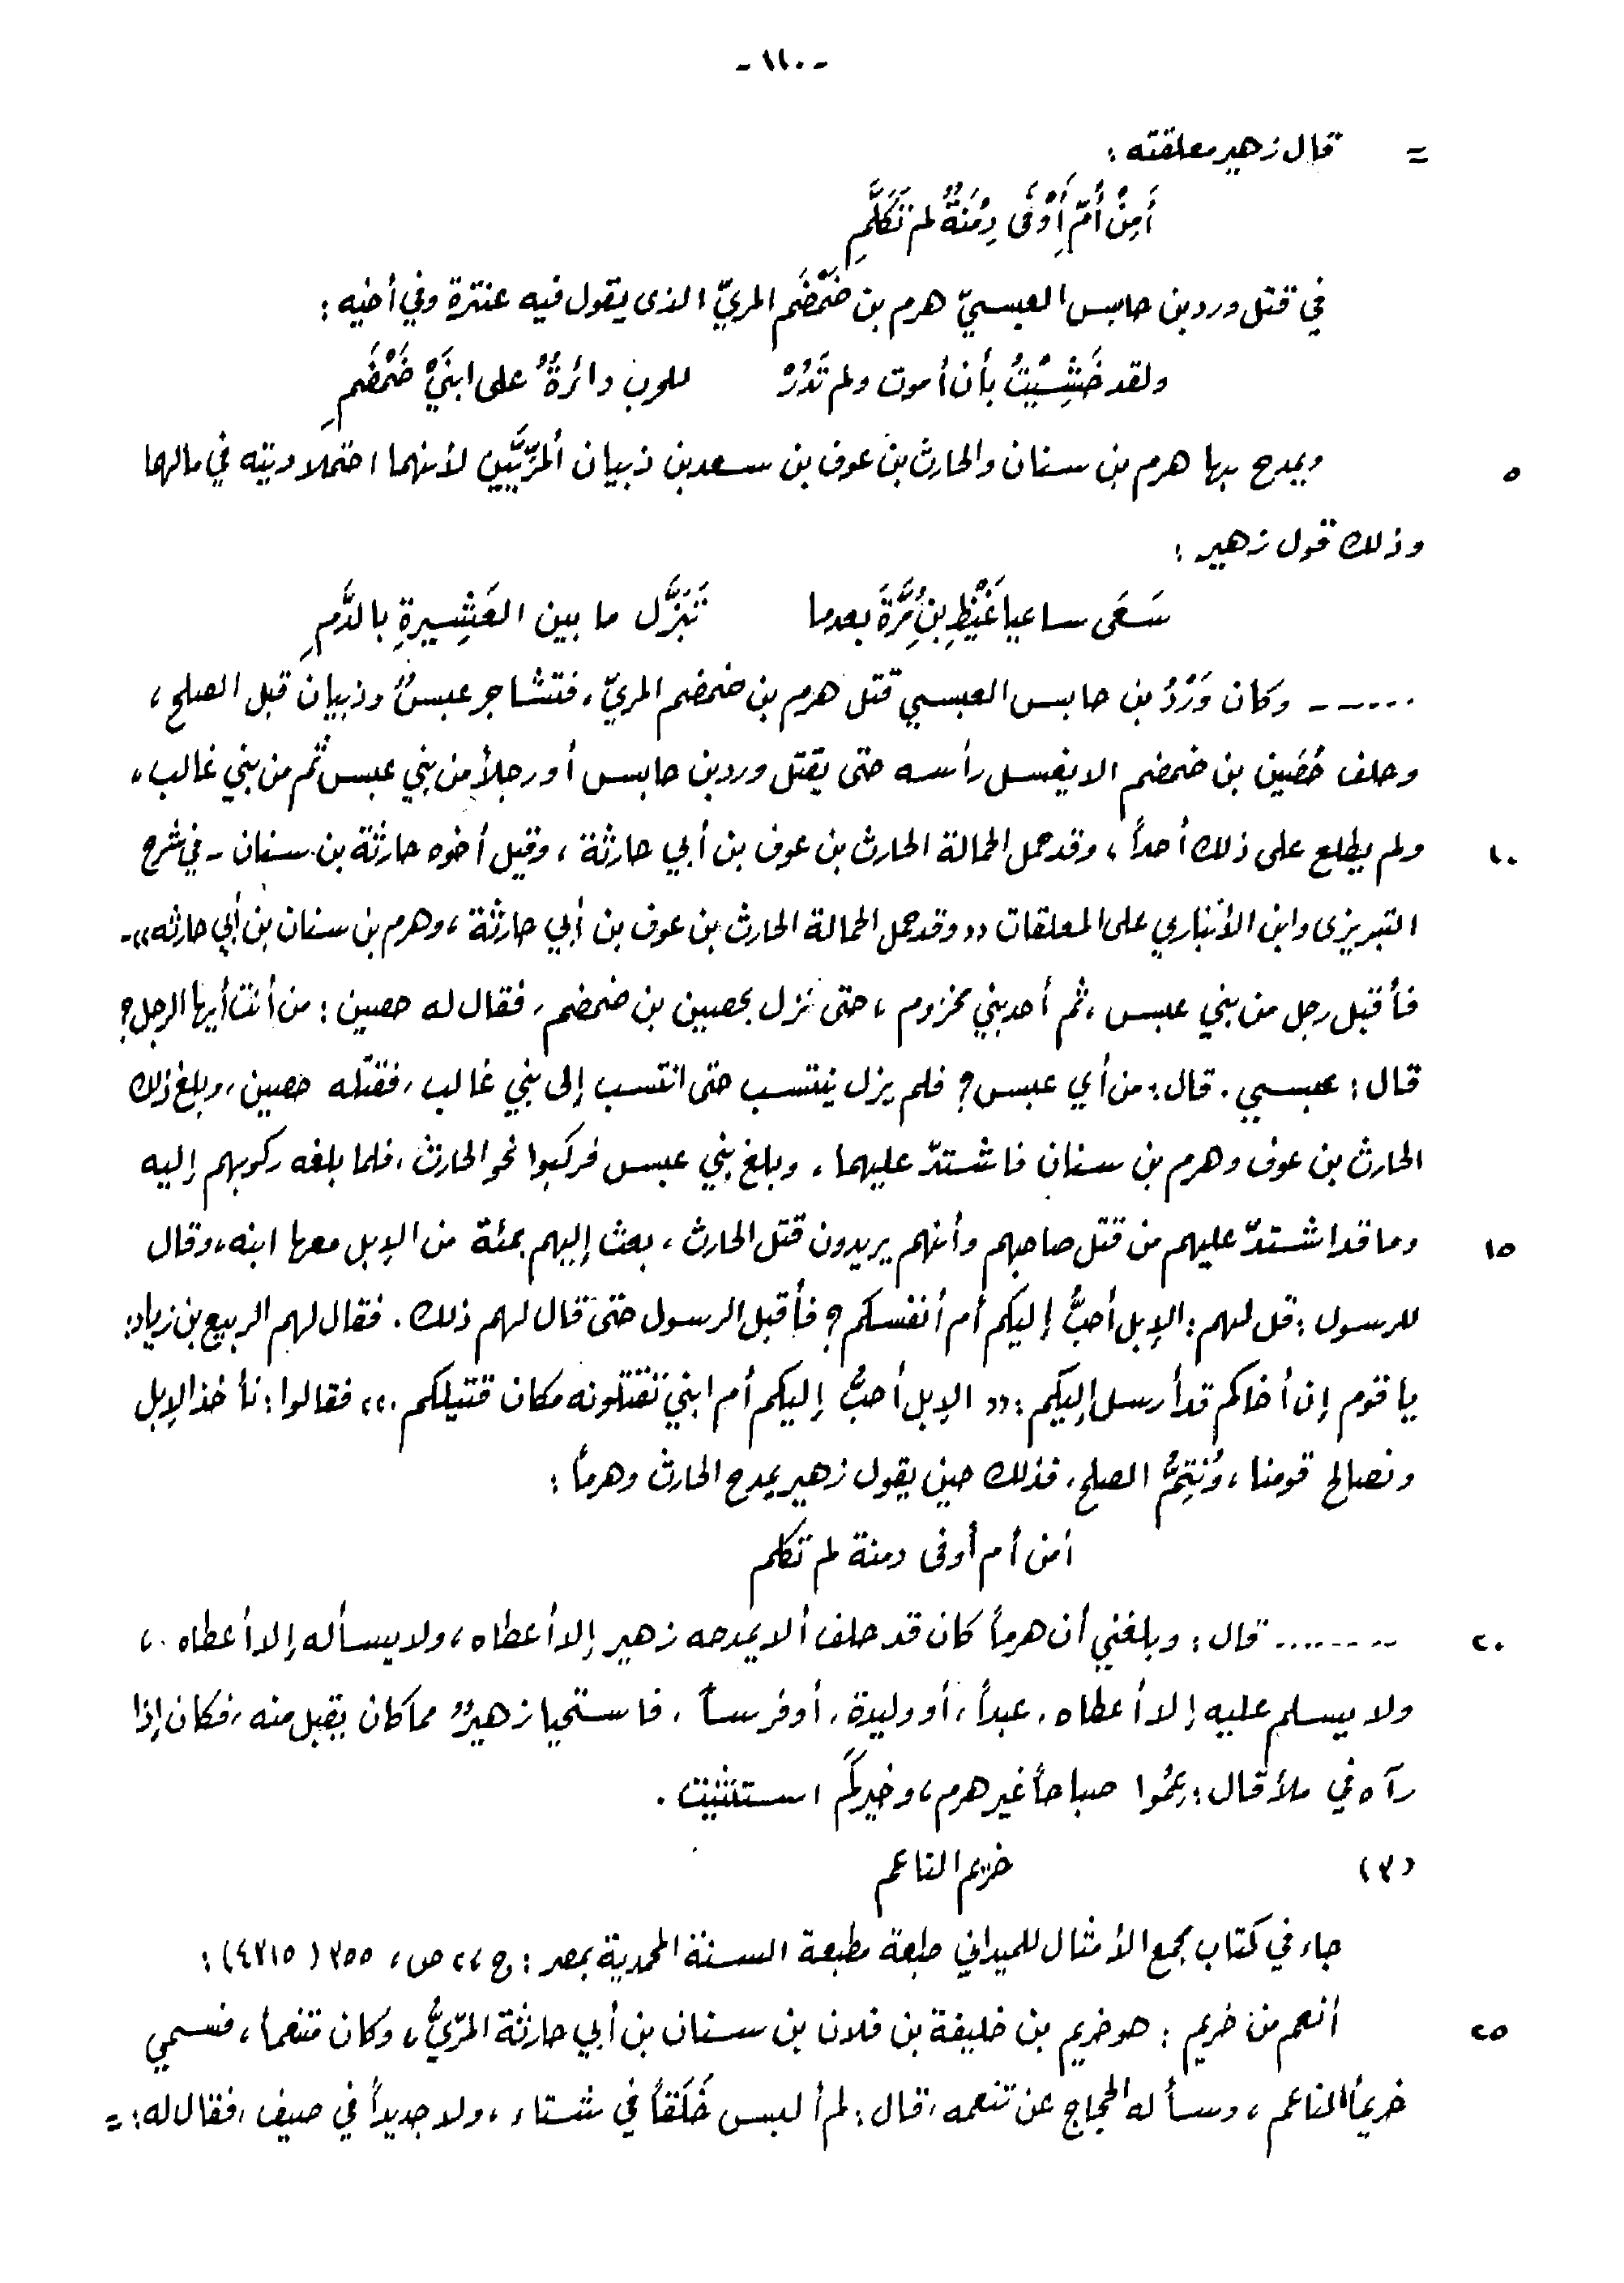 - ١١٠ -
= قال زهير معلقته :
أَمِنْ أُمِّ أَوْفَى دِمْنَةٌ لم تَكَلَّمِ
في قتل ورد بن حابس العبسيّ هرم بن ضَمْضَم المريّ الذى يقول فيه عنترة وفي أخيه :
ولقد خَشِيْتُ بأن أموت ولم تَدُرْ للحرب دائرةٌ على ابنَيْ ضَمْضَمِ
٥ ويمدح بها هرم بن سنان والحارث بن عوف بن سعد بن ذبيان ألمرّيَّيين لأنهما احتملا ديته في مالهما
وذلك قول زهير :
سَعَى ساعيا غَيْظِ بنِ مُرَّةَ بعدما تَبَزَّل ما بين العَشِيرةِ بالدَّمِ
...... وكان وَرْدُ بن حابس العبسي قتل هرم بن ضمضم المريّ ، فتشاجر عبسٌ وذبيان قبل الصلح ،
وحلف حُصَين بن ضمضم الا يغسل رأسه حتى يقتل ورد بن حابس أو رجلاً من بني عبس ثم من بني غالب ،
١٠ ولم يطلع على ذلك أحداً ، وقد حمل الحمالة الحارث بن عوف بن أبي حارثة ، وقيل أخوه حارثة بن سنان - في شرح
التبريزى وابن الأنباري على المعلقات «وقد حمل الحمالة الحارث بن عوف بن أبي حارثة ، وهرم بن سنان بن أبي حارثه» -
فأقبل رجل من بني عبس ، ثم أحد بني مخزوم ، حتى نزل بحصين بن ضمضم ، فقال له حصين : من أنت أيها الرجل ؟
قال : عبسي . قال : من أي عبس ؟ فلم يزل ينتسب حتى انتسب إلى بني غالب ، فقتله حصين ، وبلغ ذلك
الحارث بن عوف وهرم بن سنان فاشتدّ عليهما ، وبلغ بني عبس فركبوا نحو الحارث ، فلما بلغه ركوبهم إليه
١٥ وما قد اشتدّ عليهم من قتل صاحبهم وأنهم يريدون قتل الحارث ، بعث إليهم بمئة من الإبل معها ابنه ، وقال
للرسول : قل لهم : الإبل أحبُّ إليكم أم أنفسكم ؟ فأقبل الرسول حتى قال لهم ذلك . فقال لهم الربيع بن زياد :
يا قوم إن أخاكم قد أرسل إليكم : «الإبل أحبُّ إليكم أم ابني تقتلونه مكان قتيلكم .» فقالوا : نأخذ الإبل
ونصالح قومنا ، ونُتِمُّ الصلح . فذلك حين يقول زهير يمدح الحارث وهرماً :
أمن أم أوفى دمنة لم تكلم
٢٠ ........ قال : وبلغني أن هرماً كان قد حلف ألا يمدحه زهير إلا أعطاه ، ولا يسأله إلا أعطاه ،
ولا يسلم عليه إلا أعطاه ، عبداً ، أو وليدة ، أو فرساً ، فاستحيا زهيرٌ مما كان يقبل منه ، فكان إذا
رآه في ملأ قال : عِمُوا صباحاً غير هرم ، وخيركم استثنيت .
(٣) خريم الناعم
جاء في كتاب مجمع الأمثال للميداني طبعة مطبعة السنة المحمدية بمصر : ج ٢ ، ص ، ٣٥٥ ( ٤٣١٥ ) :
٢٥ أنعم من خريم : هو خريم بن خليفة بن فلان بن سنان بن أبي حارثة المرّيُّ ، وكان متنعماً ، فسمي
خريماً الناعم ، وسأله الحجاج عن تنعمه ، قال : لم ألبس خَلَقاً في شتاء ، ولا جديداً في صيف ، فقال له : =